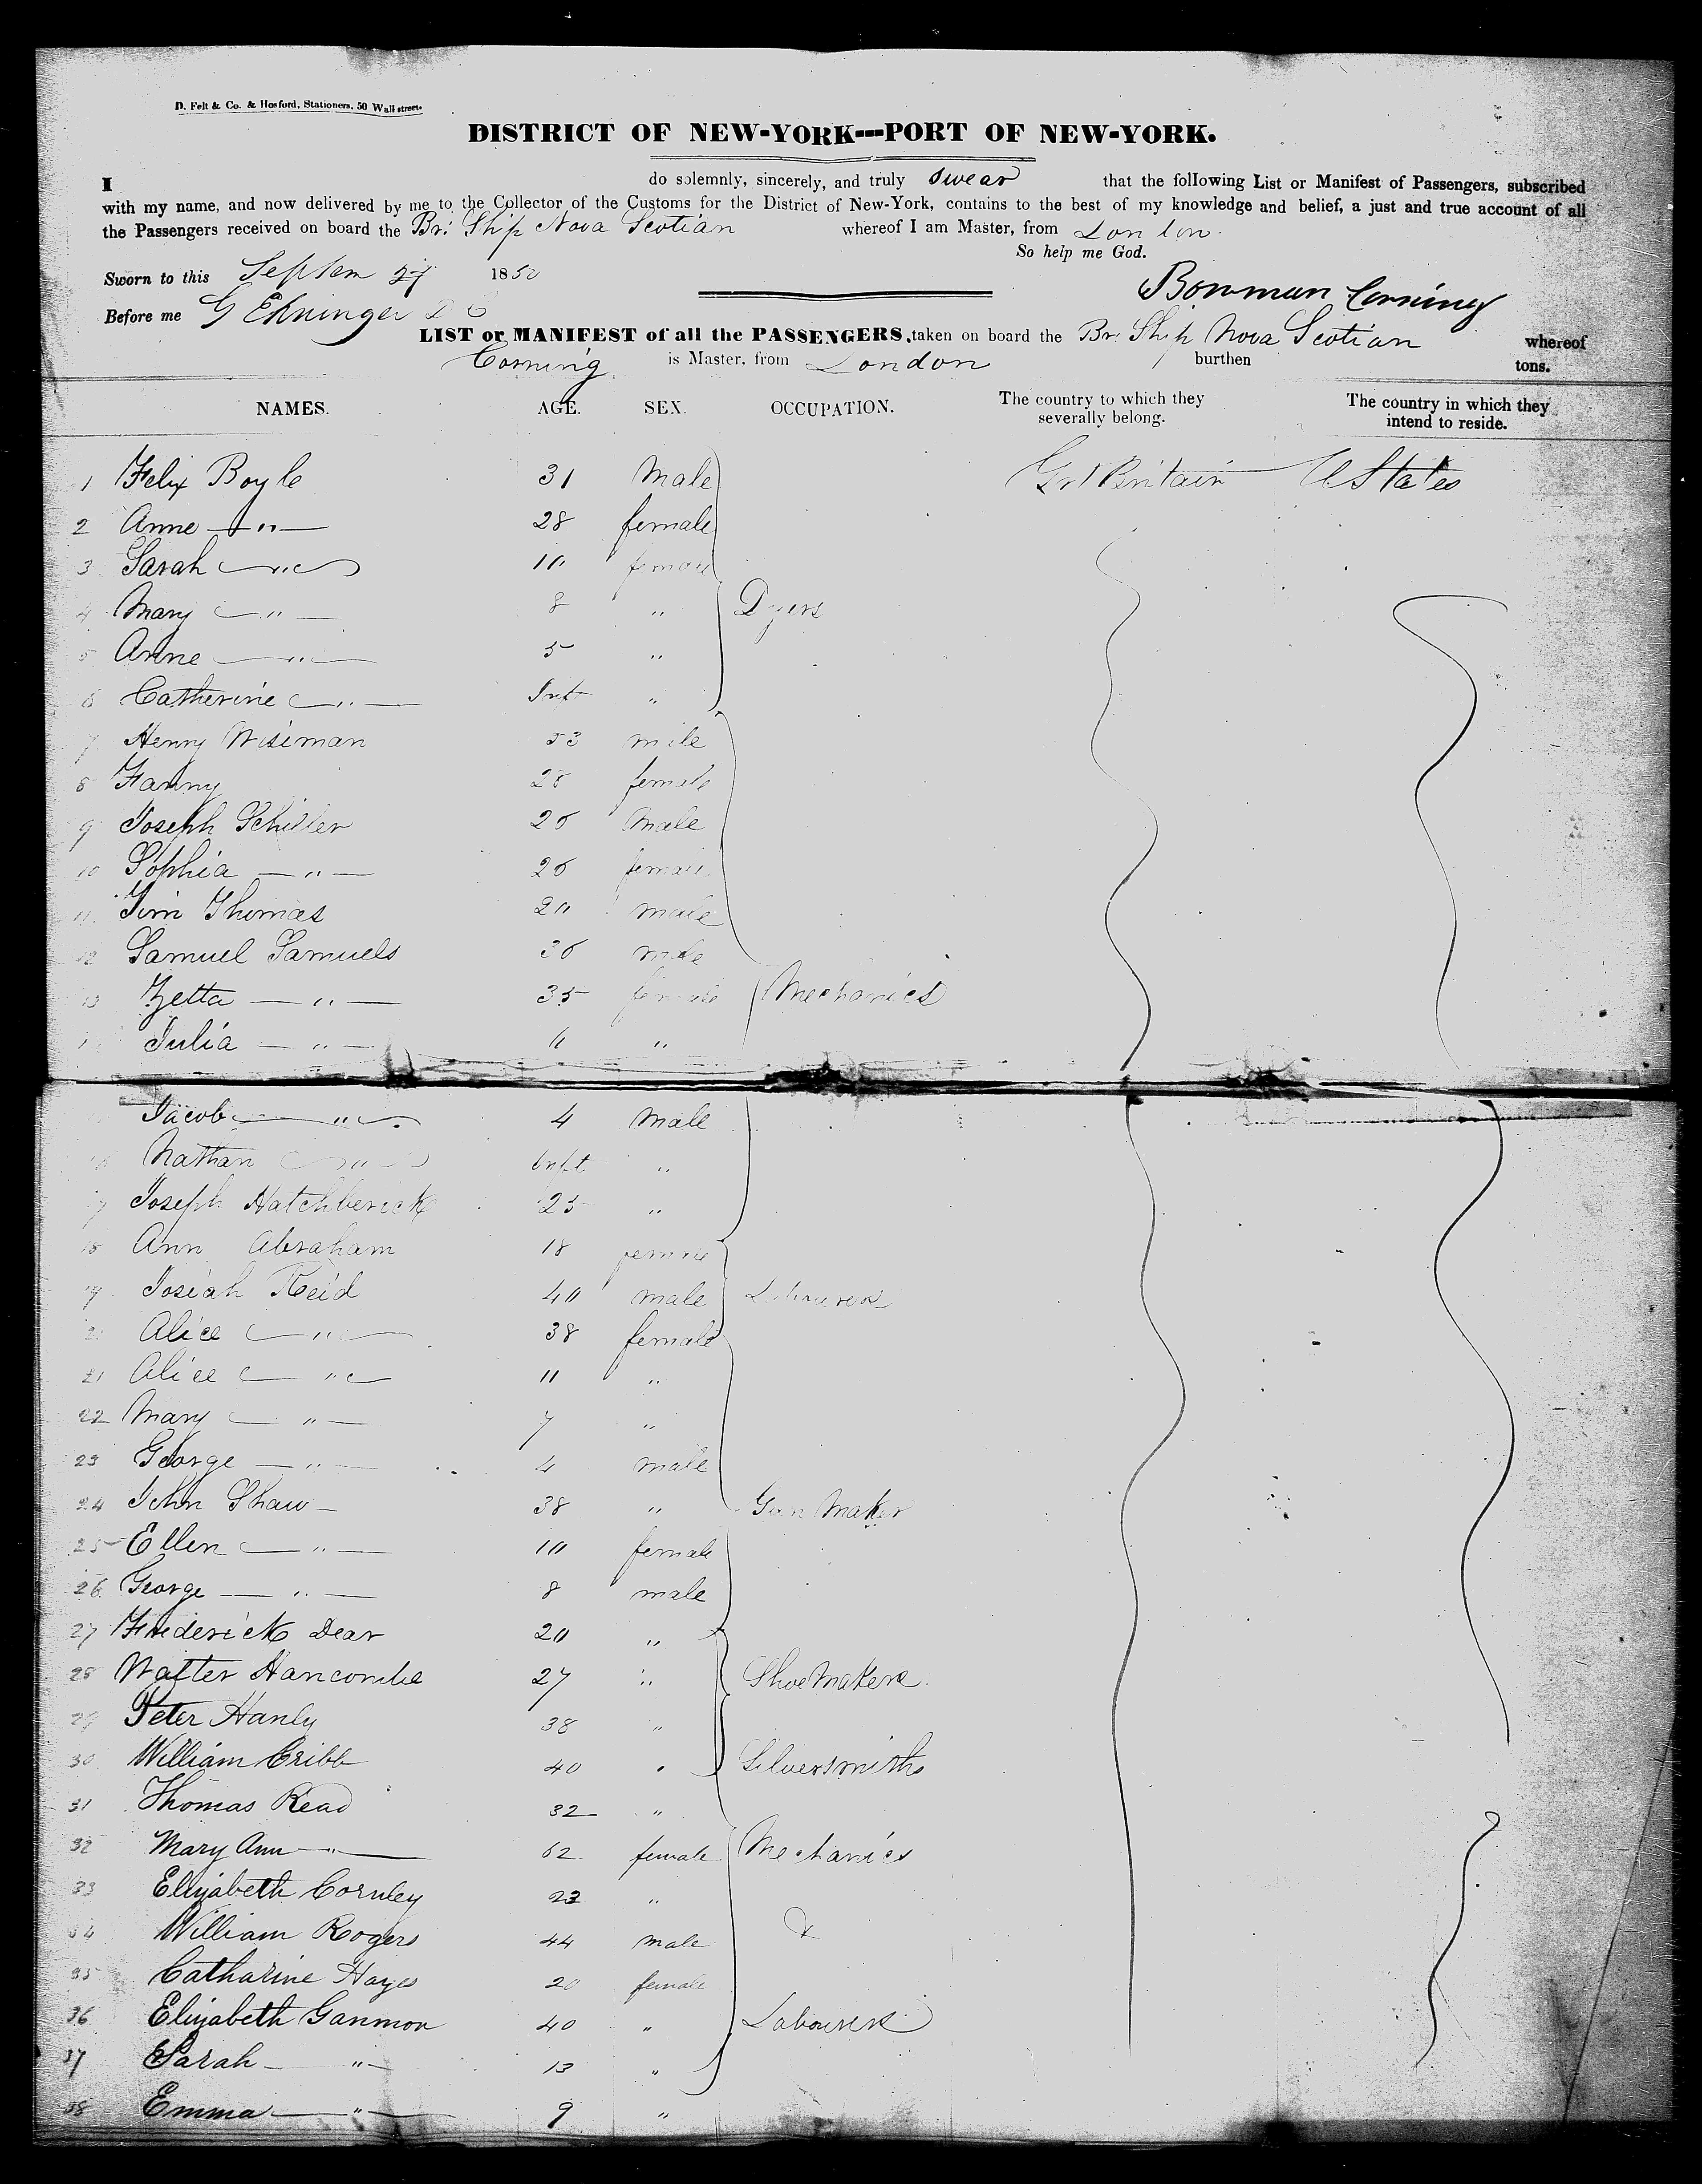 D. Felt & Co. & Hosford, Stationers, 50 Wall street.
DISTRICT OF NEW-YORK---PORT OF NEW-YORK.
I do solemnly, sincerely, and truly swear that the following List or Manifest of Passengers, subscribed
with my name, and now delivered by me to the Collector of the Customs for the District of New-York, contains to the best of my knowledge and belief, a just and true account of all
the Passengers received on board the Br: Ship Nova Scotian whereof I am Master, from London
So help me God.
Sworn to this Septem 27 1850
Bowman Corning
Before me
LIST or MANIFEST of all the PASSENGERS, taken on board the Br: Ship Nova Scotian whereof
Corning is Master, from London burthen tons.
NAMES. AGE. SEX. OCCUPATION. The country to which they severally belong. The country in which they intend to reside.
1 Felix Boyle 31 Male Gr Britain U States
2 Anne " 28 female
3 Sarah " 10 female
4 Mary " 8 " Dyers
5 Anne " 5 "
6 Catherine " Inft "
7 Henry Wiseman 33 male
8 Fanny 28 female
9 Joseph Schiller 26 Male
10 Sophia " 26 female
11 Jim Thomas 20 male
12 Samuel Samuels 36 male
13 Zetta " 35 female Mechanics
Julia " 11 "
Jacob " 4 male
16 Nathan " Inft "
17 Joseph Hatchberick 25 "
18 Ann Abraham 18 female
19 Josiah Reid 40 male Labourers
Alice " 38 female
21 Alice " 11 "
22 Mary " 7 "
23 George " 4 male
24 John Shaw 38 " Gun Maker
25 Ellen " 10 female
26 George " 8 male
27 Frederick Dear 20 "
28 Walter Hancombe 27 " Shoe Makers
29 Peter Hanly 38 "
30 William Cribb 40 " Silversmiths
31 Thomas Read 32 "
32 Mary Ann " 62 female Mechanics
33 Elizabeth Cornley 23 "
34 William Rogers 44 male &
35 Catharine Hayes 20 female
36 Elizabeth Ganmon 40 " Labourers
37 Sarah " 13 "
38 Emma " 9 "